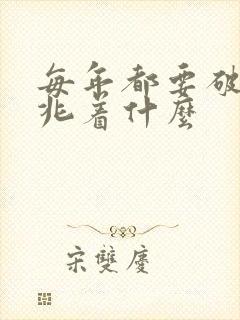 每年都要破
兆着什麼
宋雙慶